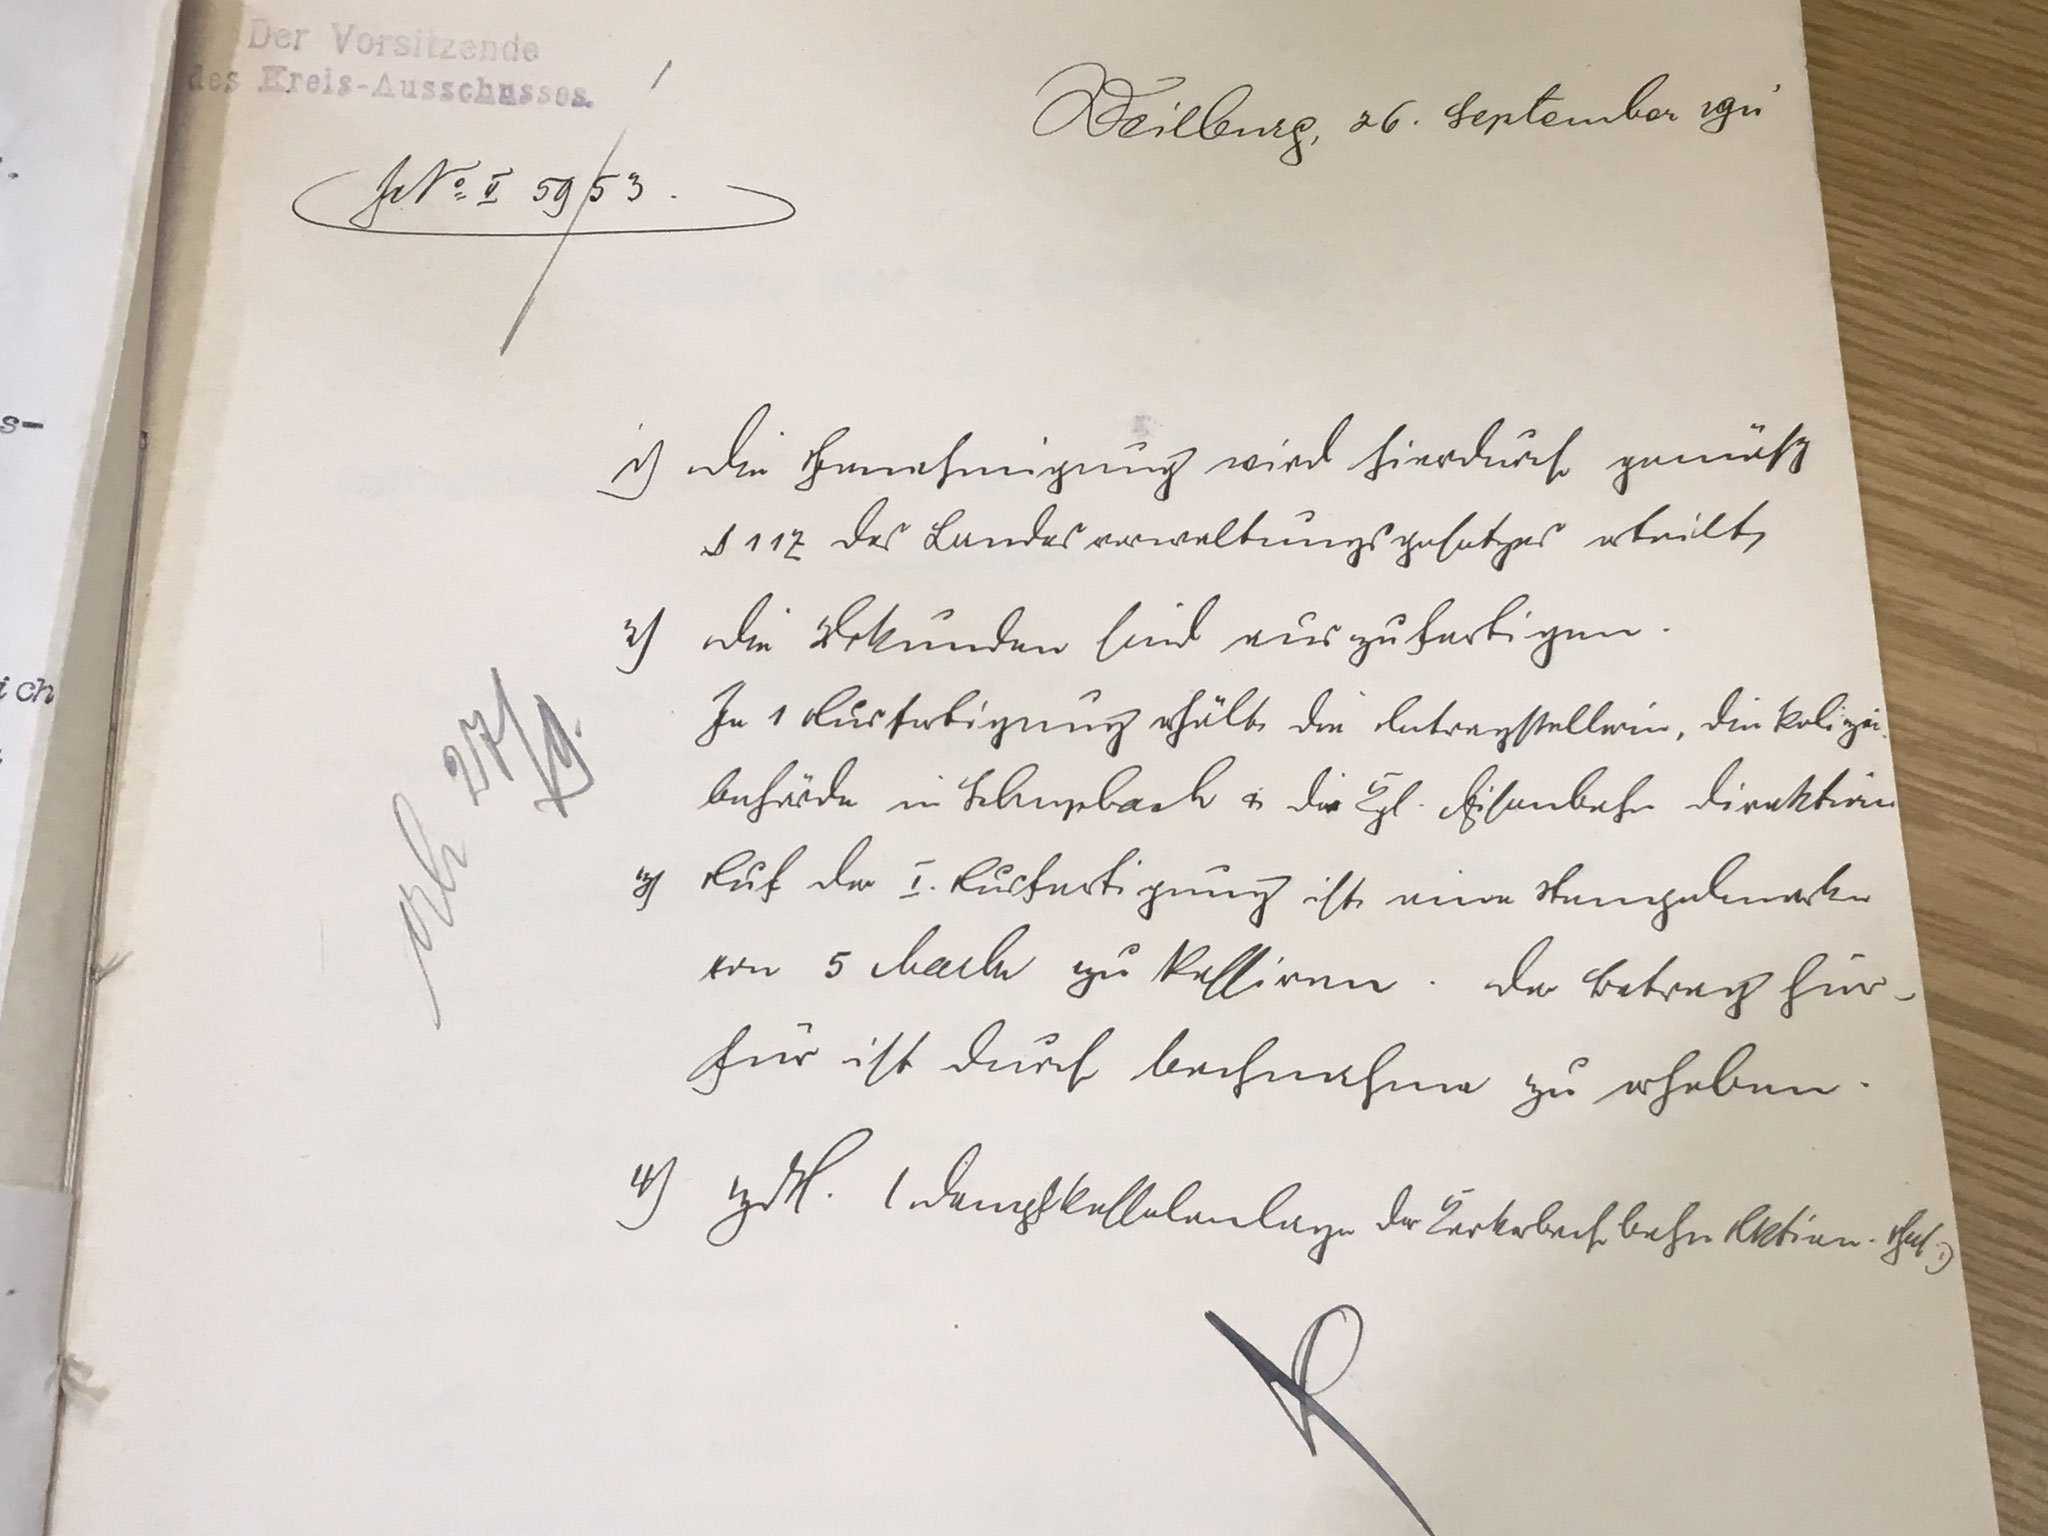 Der Vorsitzende
des Kreis-Ausschusses.
Weilburg, 26. September 1911
JNo. II 5953.
1) Die Genehmigung wird hierdurch gemäß
§ 117 des Landesverwaltungsgesetzes erteilt,
2) Die Urkunden sind auszufertigen.
Je 1 Ausfertigung erhält die Antragstellerin, die Polizei-
behörde in Schupbach & die Kgl. Eisenbahn direktion
3) Auf der I. Ausfertigung ist eine Stempelmarke
von 5 Mark zu kassiren. Der Betrag hier-
für ist durch Nachnahme zu erheben.
4) zdA. (Dampfkesselanlage der Kerkerbachbahn Aktien-Ges.)
27/9.
s-
ich